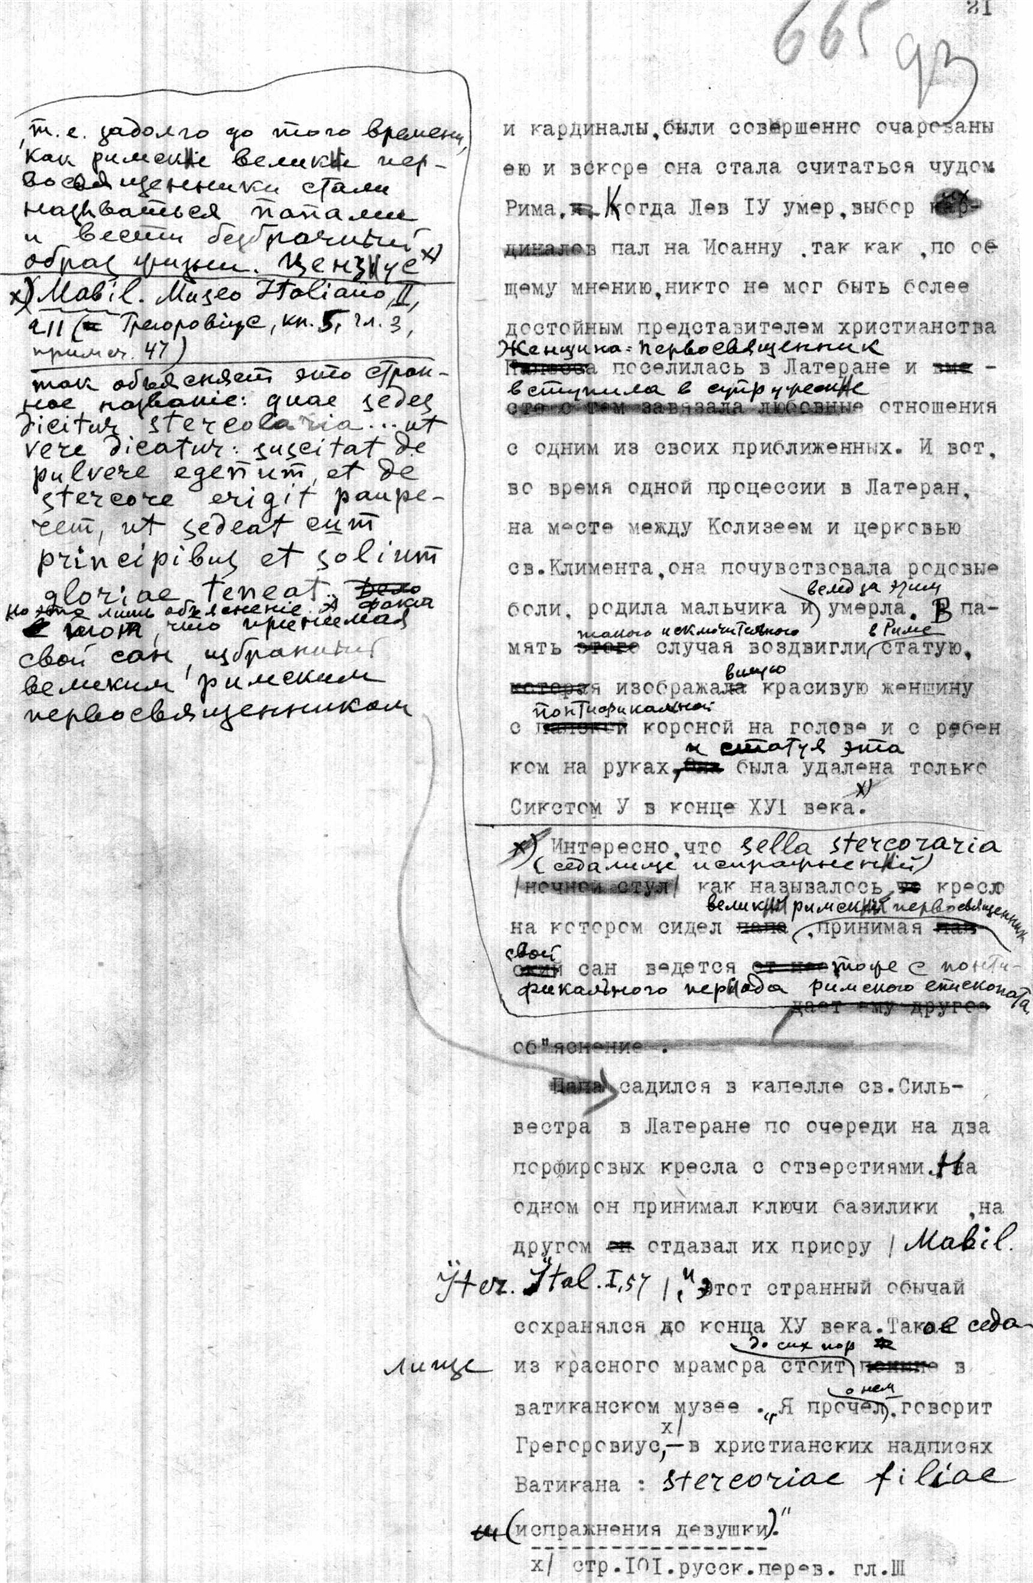 21
665
93
и кардиналы, были совершенно очарованы
ею и вскоре она стала считаться чудом
Рима. Когда Лев IУ умер, выбор кар-
диналов пал на Иоанну , так как , по об
щему мнению, никто не мог быть более
достойным представителем христианства
Женщина-первосвященник
поселилась в Латеране и
вступила в супружеские
завязала любовные отношения
с одним из своих приближенных. И вот,
во время одной процессии в Латеран,
на месте между Колизеем и церковью
св.Климента, она почувствовала родовые
вслед за этим
боли, родила мальчика и умерла. В па-
такого исключительного в Риме
мять этого случая воздвигли статую,
вшую
которая изображала красивую женщину
понтификальной
с папской короной на голове и с ребен
и статуя эта
ком на руках, Она была удалена только
Сикстом У в конце ХУI века. х)
х) Интересно, что sella stercoraria
(седалище испражнений)
/ночной стул/ как называлось то кресло
великий римский первосвященник
на котором сидел папа , принимая пап-
свой
ский сан ведется тоже с понти-
фикального периода римского епископата
дает ему другое
об"яснение .
Папа садился в капелле св.Силь-
вестра в Латеране по очереди на два
порфировых кресла с отверстиями. На
одном он принимал ключи базилики , на
другом он отдавал их приору / Mabil.
Iter. Ital. I, 57 /, и этот странный обычай
сохранялся до конца ХУ века. Такое седа-
до сих пор
лище из красного мрамора стоит поныне в
о нем
ватиканском музее . „Я прочел, говорит
х/
Грегоровиус,— в христианских надписях
Ватикана : stercoriae filiae
(испражнения девушки)."
х/ стр.IOI.русск.перев. гл.Ш
, т. е. задолго до того времени,
как римские великие пер-
восвященники стали
называться папами
и вести безбрачный
образ жизни. Цензус х)
х) Mabil. Museo Italiano, II,
211 (Грегоровиус, кн. 5, гл. 3,
примеч. 47)
так объясняет это стран-
ное название: quae sedes
dicitur stercolaria... ut
vere dicatur: suscitat de
pulvere egenum, et de
stercore erigit paupe-
rem, ut sedeat cum
principibus et solium
gloriae teneat. Дело
Но это лишь объяснение факта
того, что принимая
свой сан, избранный
великим римским
первосвященником